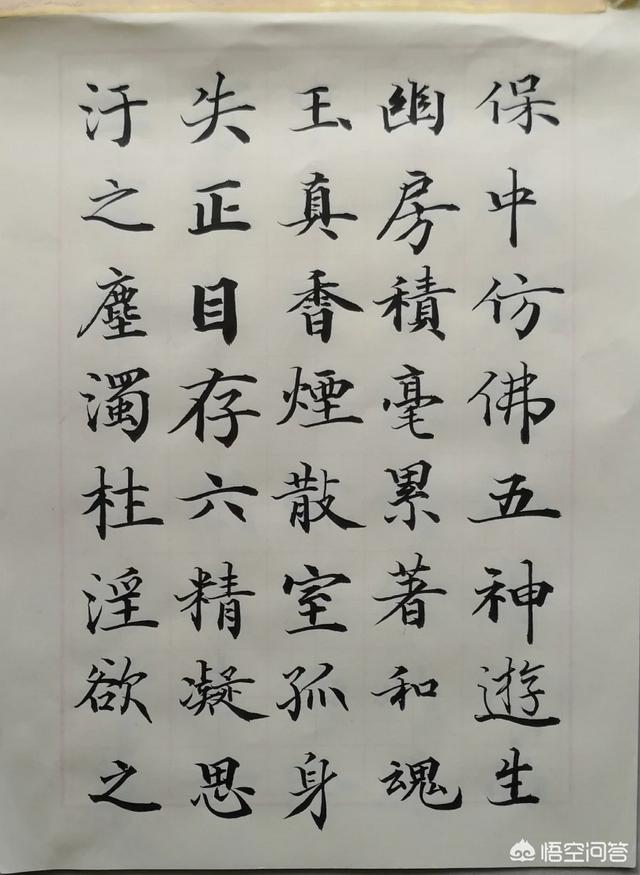 保中仿佛五神遊生
幽房積毫累著和魂
玉真香煙散室孤身
失正目存六精凝思
汙之塵濁柱淫欲之
悟空问答